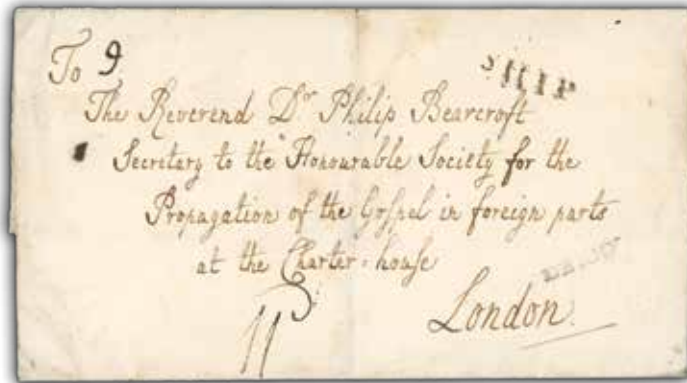 To 9
SHIP
The Reverend Dr Philip Bearcroft
Secretary to the Honourable Society for the
Propagation of the Gospel in foreign parts
at the Charter-house
London
11